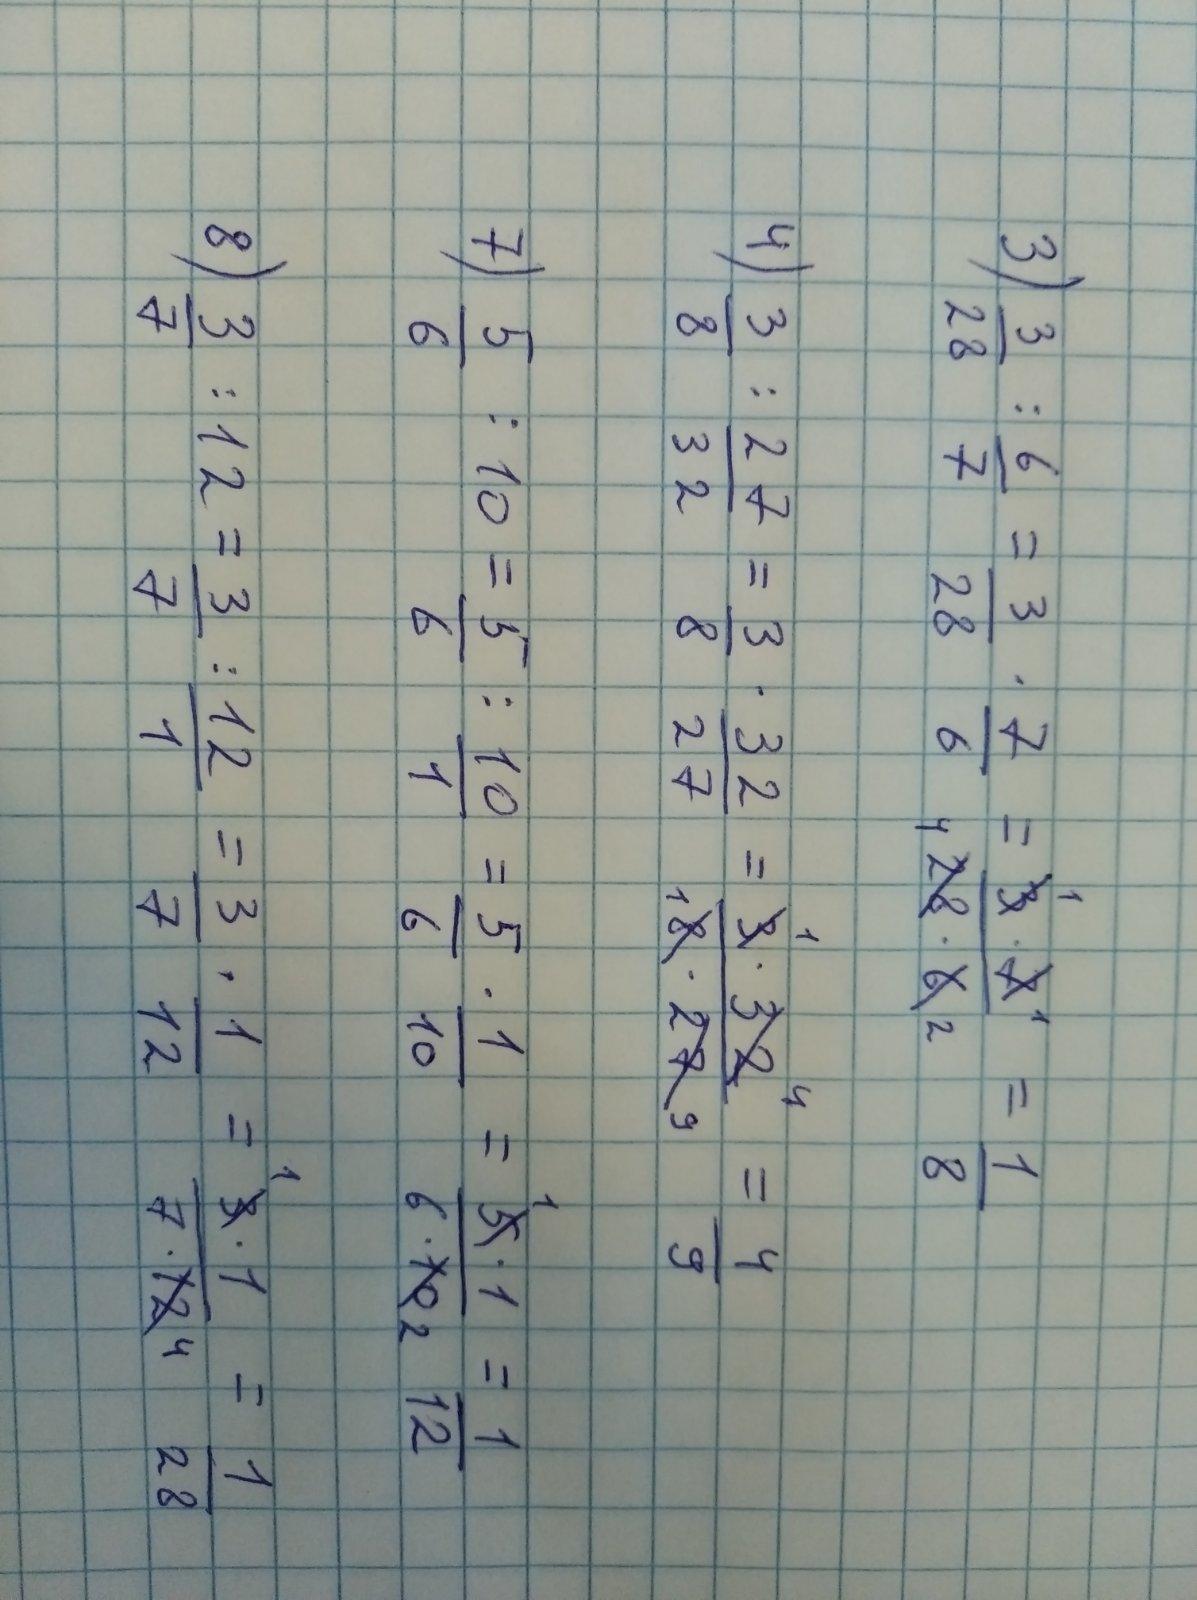 3) 3/28 : 6/7 = 3/28 · 7/6 = 3 1 · 7 1 / 4 28 · 6 2 = 1/8
4) 3/8 : 27/32 = 3/8 · 32/27 = 3 1 · 32 4 / 1 8 · 27 9 = 4/9
7) 5/6 : 10 = 5/6 : 10/1 = 5/6 · 1/10 = 5 1 · 1 / 6 · 10 2 = 1/12
8) 3/7 : 12 = 3/7 : 12/1 = 3/7 · 1/12 = 1 3 · 1 / 7 · 12 4 = 1/28